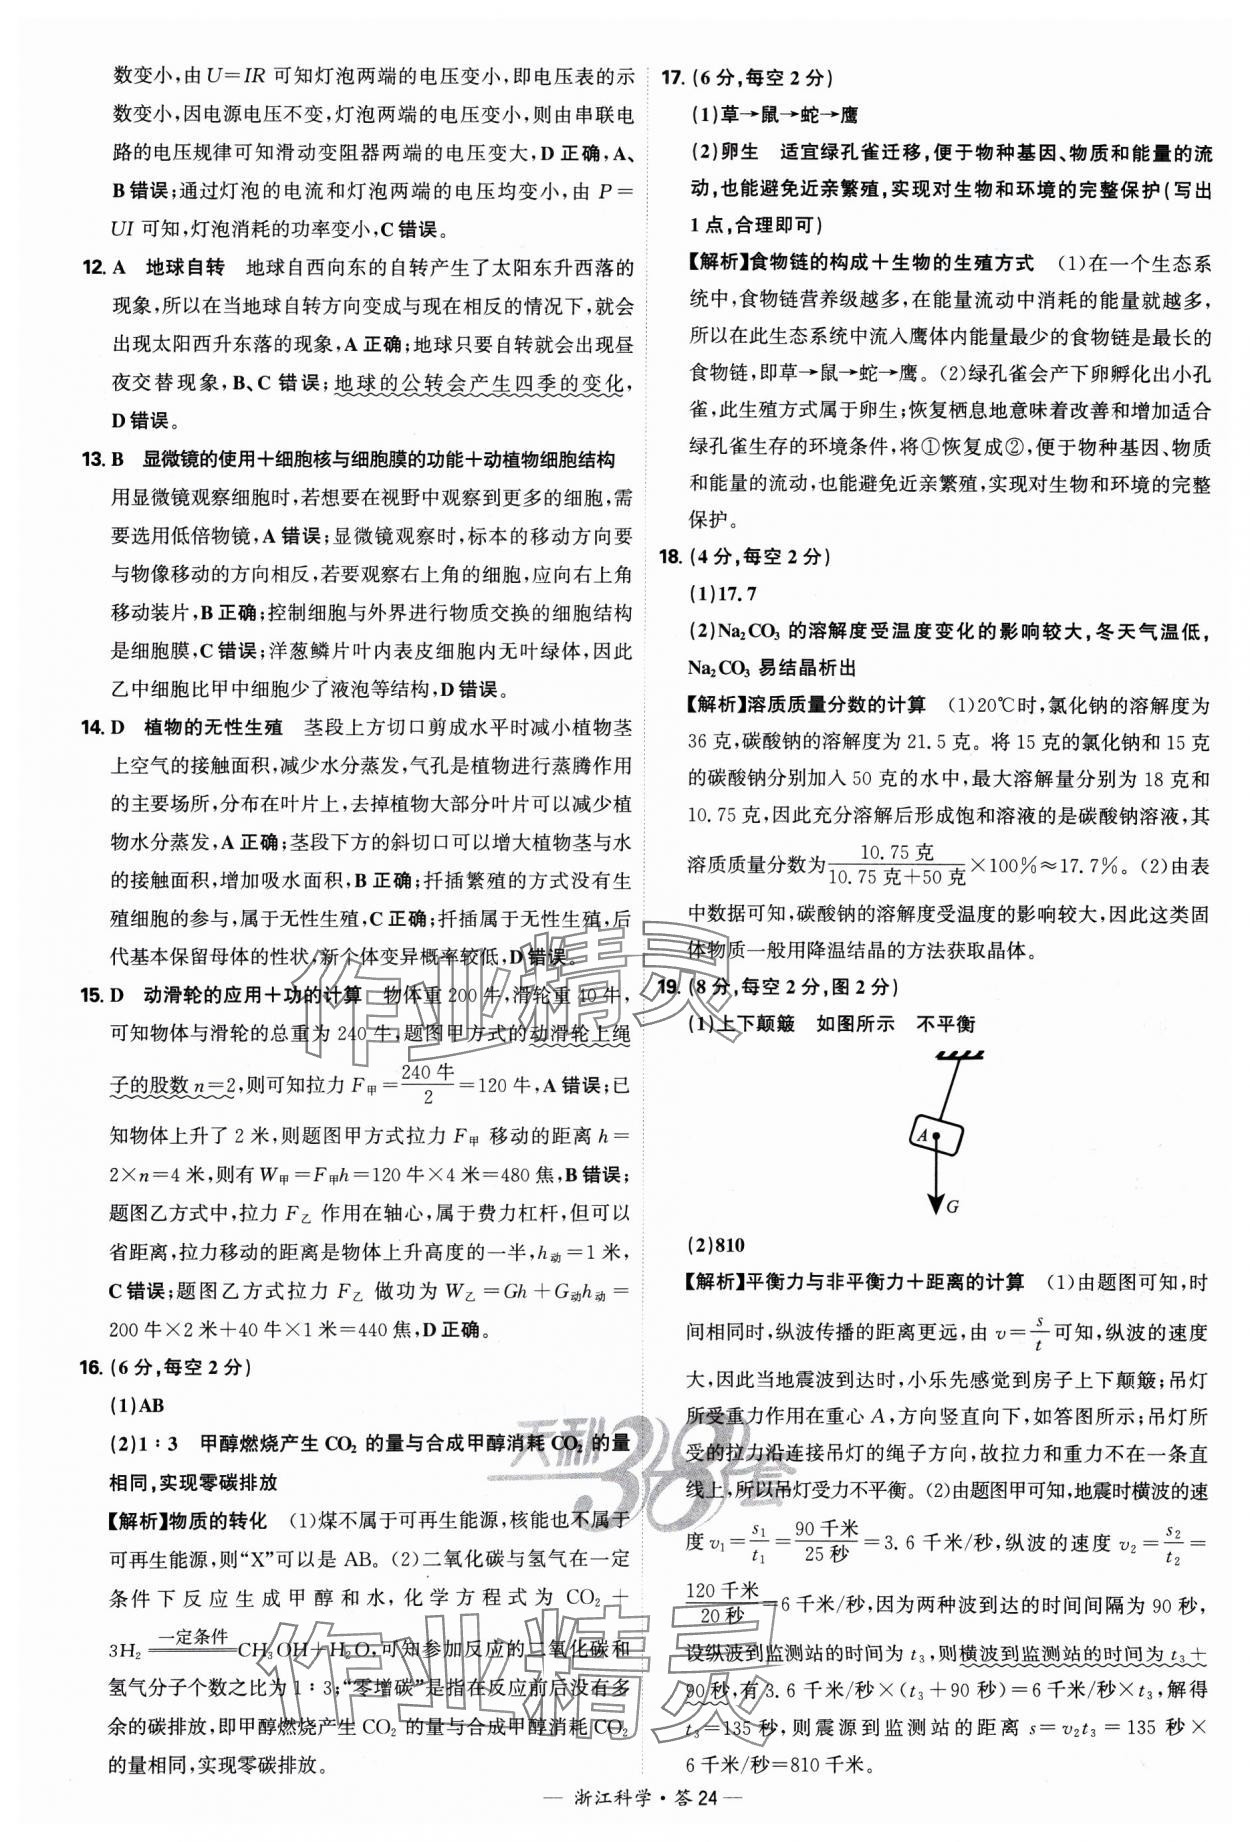 数变小,由 U=IR 可知灯泡两端的电压变小,即电压表的示
数变小,因电源电压不变,灯泡两端的电压变小,则由串联电
路的电压规律可知滑动变阻器两端的电压变大,D 正确,A、
B 错误;通过灯泡的电流和灯泡两端的电压均变小,由 P=
UI 可知,灯泡消耗的功率变小,C 错误。
12. A 地球自转 地球自西向东的自转产生了太阳东升西落的
现象,所以在当地球自转方向变成与现在相反的情况下,就会
出现太阳西升东落的现象,A 正确;地球只要自转就会出现昼
夜交替现象,B、C 错误;地球的公转会产生四季的变化,
D 错误。
13. B 显微镜的使用+细胞核与细胞膜的功能+动植物细胞结构
用显微镜观察细胞时,若想要在视野中观察到更多的细胞,需
要选用低倍物镜,A 错误;显微镜观察时,标本的移动方向要
与物像移动的方向相反,若要观察右上角的细胞,应向右上角
移动装片,B 正确;控制细胞与外界进行物质交换的细胞结构
是细胞膜,C 错误;洋葱鳞片叶内表皮细胞内无叶绿体,因此
乙中细胞比甲中细胞少了液泡等结构,D 错误。
14. D 植物的无性生殖 茎段上方切口剪成水平时减小植物茎
上空气的接触面积,减少水分蒸发,气孔是植物进行蒸腾作用
的主要场所,分布在叶片上,去掉植物大部分叶片可以减少植
物水分蒸发,A 正确;茎段下方的斜切口可以增大植物茎与水
的接触面积,增加吸水面积,B 正确;扦插繁殖的方式没有生
殖细胞的参与,属于无性生殖,C 正确;扦插属于无性生殖,后
代基本保留母体的性状,新个体变异概率较低,D 错误。
15. D 动滑轮的应用+功的计算 物体重 200 牛,滑轮重 40 牛,
可知物体与滑轮的总重为 240 牛,题图甲方式的动滑轮上绳
子的股数 n=2,则可知拉力 F甲=240 牛/2=120 牛,A 错误;已
知物体上升了 2 米,则题图甲方式拉力 F甲 移动的距离 h=
2×n=4 米,则有 W甲=F甲h=120 牛×4 米=480 焦,B 错误;
题图乙方式中,拉力 F乙 作用在轴心,属于费力杠杆,但可以
省距离,拉力移动的距离是物体上升高度的一半,h动=1 米,
C 错误;题图乙方式拉力 F乙 做功为 W乙=Gh+G动h动=
200 牛×2 米+40 牛×1 米=440 焦,D 正确。
16. (6 分,每空 2 分)
(1)AB
(2)1∶3 甲醇燃烧产生 CO₂ 的量与合成甲醇消耗 CO₂ 的量
相同,实现零碳排放
【解析】物质的转化 (1)煤不属于可再生能源,核能也不属于
可再生能源,则“X”可以是 AB。(2)二氧化碳与氢气在一定
条件下反应生成甲醇和水,化学方程式为 CO₂+
3H₂ 一定条件 CH₃OH+H₂O,可知参加反应的二氧化碳和
氢气分子个数之比为 1∶3;“零增碳”是指在反应前后没有多
余的碳排放,即甲醇燃烧产生 CO₂ 的量与合成甲醇消耗 CO₂
的量相同,实现零碳排放。
17. (6 分,每空 2 分)
(1)草→鼠→蛇→鹰
(2)卵生 适宜绿孔雀迁移,便于物种基因、物质和能量的流
动,也能避免近亲繁殖,实现对生物和环境的完整保护(写出
1 点,合理即可)
【解析】食物链的构成+生物的生殖方式 (1)在一个生态系
统中,食物链营养级越多,在能量流动中消耗的能量就越多,
所以在此生态系统中流入鹰体内能量最少的食物链是最长的
食物链,即草→鼠→蛇→鹰。(2)绿孔雀会产下卵孵化出小孔
雀,此生殖方式属于卵生;恢复栖息地意味着改善和增加适合
绿孔雀生存的环境条件,将①恢复成②,便于物种基因、物质
和能量的流动,也能避免近亲繁殖,实现对生物和环境的完整
保护。
18. (4 分,每空 2 分)
(1)17.7
(2)Na₂CO₃ 的溶解度受温度变化的影响较大,冬天气温低,
Na₂CO₃ 易结晶析出
【解析】溶质质量分数的计算 (1)20℃时,氯化钠的溶解度为
36 克,碳酸钠的溶解度为 21.5 克。将 15 克的氯化钠和 15 克
的碳酸钠分别加入 50 克的水中,最大溶解量分别为 18 克和
10.75 克,因此充分溶解后形成饱和溶液的是碳酸钠溶液,其
溶质质量分数为10.75 克/10.75 克+50 克×100%≈17.7%。(2)由表
中数据可知,碳酸钠的溶解度受温度的影响较大,因此这类固
体物质一般用降温结晶的方法获取晶体。
19. (8 分,每空 2 分,图 2 分)
(1)上下颠簸 如图所示 不平衡
A
G
(2)810
【解析】平衡力与非平衡力+距离的计算 (1)由题图可知,时
间相同时,纵波传播的距离更远,由 v=s/t可知,纵波的速度
大,因此当地震波到达时,小乐先感觉到房子上下颠簸;吊灯
所受重力作用在重心 A,方向竖直向下,如答图所示;吊灯所
受的拉力沿连接吊灯的绳子方向,故拉力和重力不在一条直
线上,所以吊灯受力不平衡。(2)由题图甲可知,地震时横波的速
度 v₁=s₁/t₁=90 千米/25 秒=3.6 千米/秒,纵波的速度 v₂=s₂/t₂=
120 千米/20 秒=6 千米/秒,因为两种波到达的时间间隔为 90 秒,
设纵波到监测站的时间为 t₃,则横波到监测站的时间为 t₃+
90 秒,有 3.6 千米/秒×(t₃+90 秒)=6 千米/秒×t₃,解得
t₃=135 秒,则震源到监测站的距离 s=v₂t₃=135 秒×
6 千米/秒=810 千米。
作业精灵
天利38套
作业精灵
— 浙江科学·答 24 —